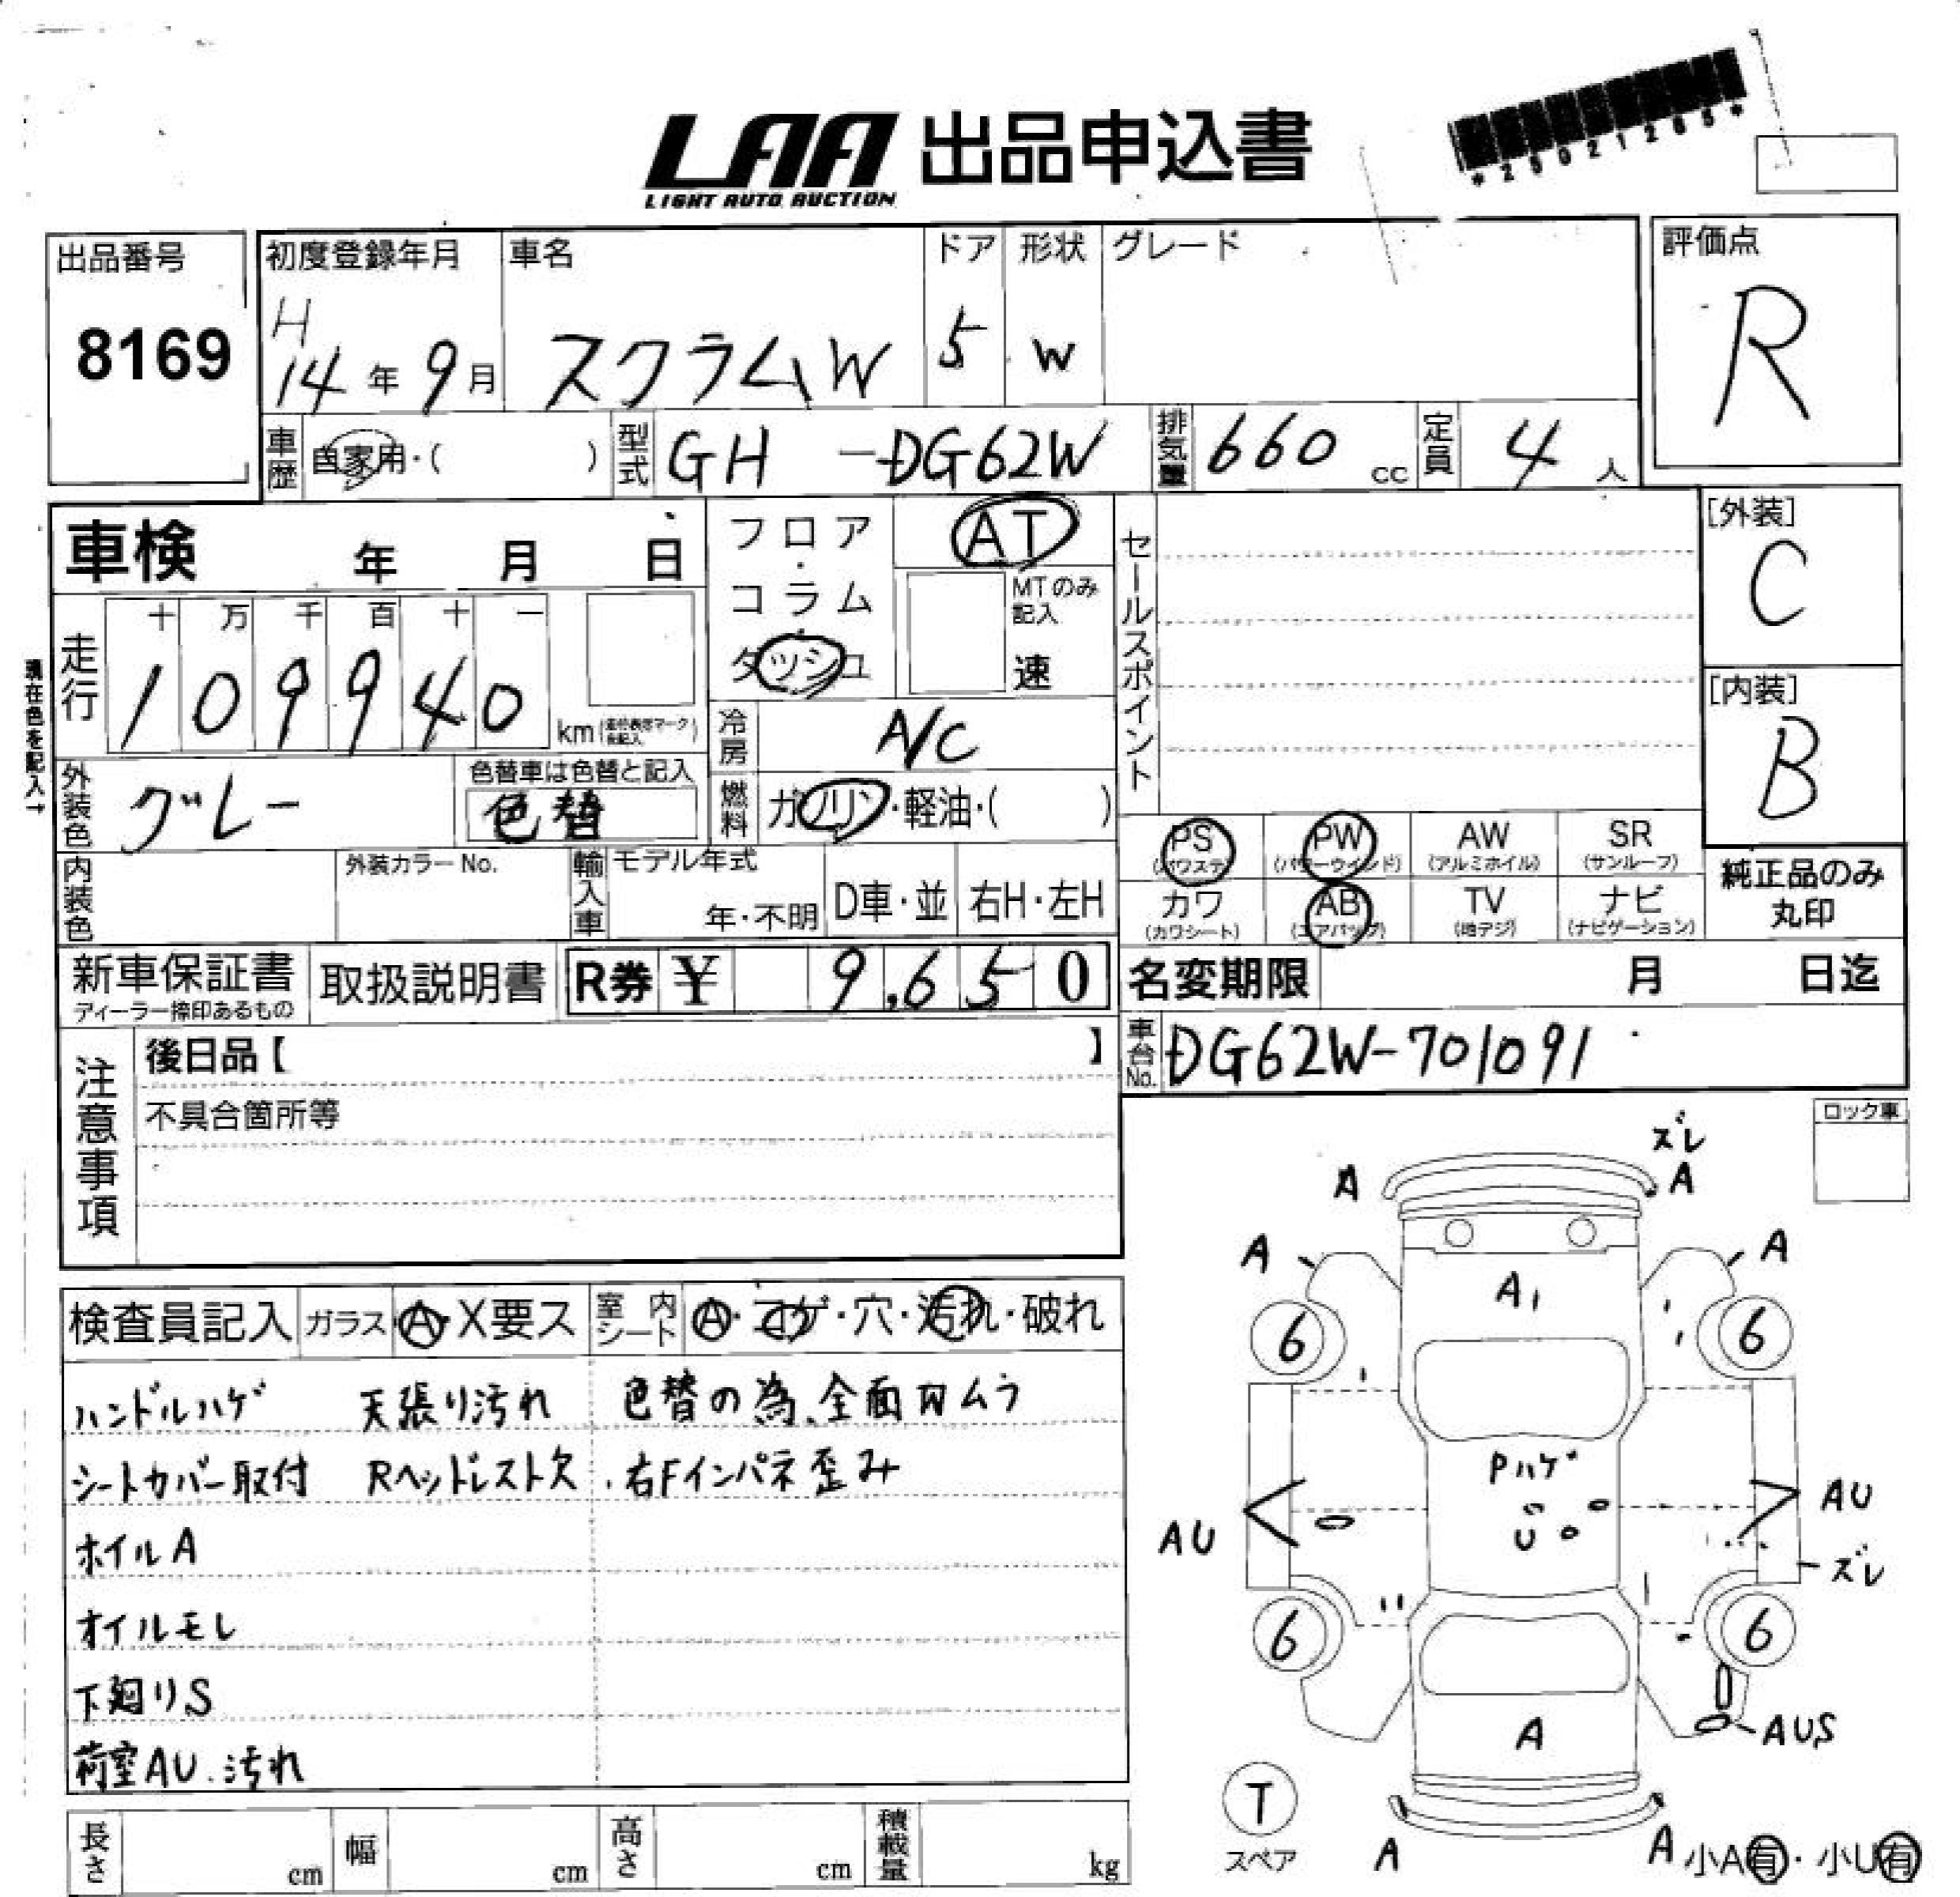 LAA 出品申込書
LIGHT AUTO AUCTION
*25021265*
出品番号
8169
初度登録年月
H
14年 9月
車名
スクラムW
ドア
5
形状
W
グレード
評価点
R
車歴
自家用・( )
型式
GH -DG62W
排気量
660 cc
定員
4 人
車検 年 月 日
フロア・
コラム
ダッシュ
AT
MTのみ
記入
速
セールスポイント
[外装]
C
[内装]
B
現在色を記入→
走行
十 万 千 百 十 一
1 0 9 9 4 0
km
冷房
A/C
外装色
グレー
色替車は色替と記入
色替
燃料
ガソリン・軽油・( )
PS
(パワステ)
PW
(パワーウインド)
AW
(アルミホイル)
SR
(サンルーフ)
カワ
(カワシート)
AB
(エアバッグ)
TV
(地デジ)
ナビ
(ナビゲーション)
純正品のみ
丸印
内装色
外装カラーNo.
輸入車
モデル年式
年・不明
D車・並
右H・左H
新車保証書
ディーラー捺印あるもの
取扱説明書
R券 ¥ 9,650
名変期限 月 日迄
車台No.
DG62W-701091
注意事項
後日品【 】
不具合箇所等
ロック車
検査員記入
ガラス
A・X要ス
室内
シート
A・コゲ・穴・汚れ・破れ
ハンドルハゲ 天張り汚れ 色替の為、全面Wムラ
シートカバー取付 Rヘッドレスト欠 右Fインパネ歪み
ホイルA
オイルモレ
下廻りS
荷室AU、汚れ
ズレ
A A
A A
A1
6 6
Pハゲ
U
AU
AU
ズレ
6 6
AUS
A
T
スペア
A A
小A有・小U有
長さ cm
幅 cm
高さ cm
積載量 kg